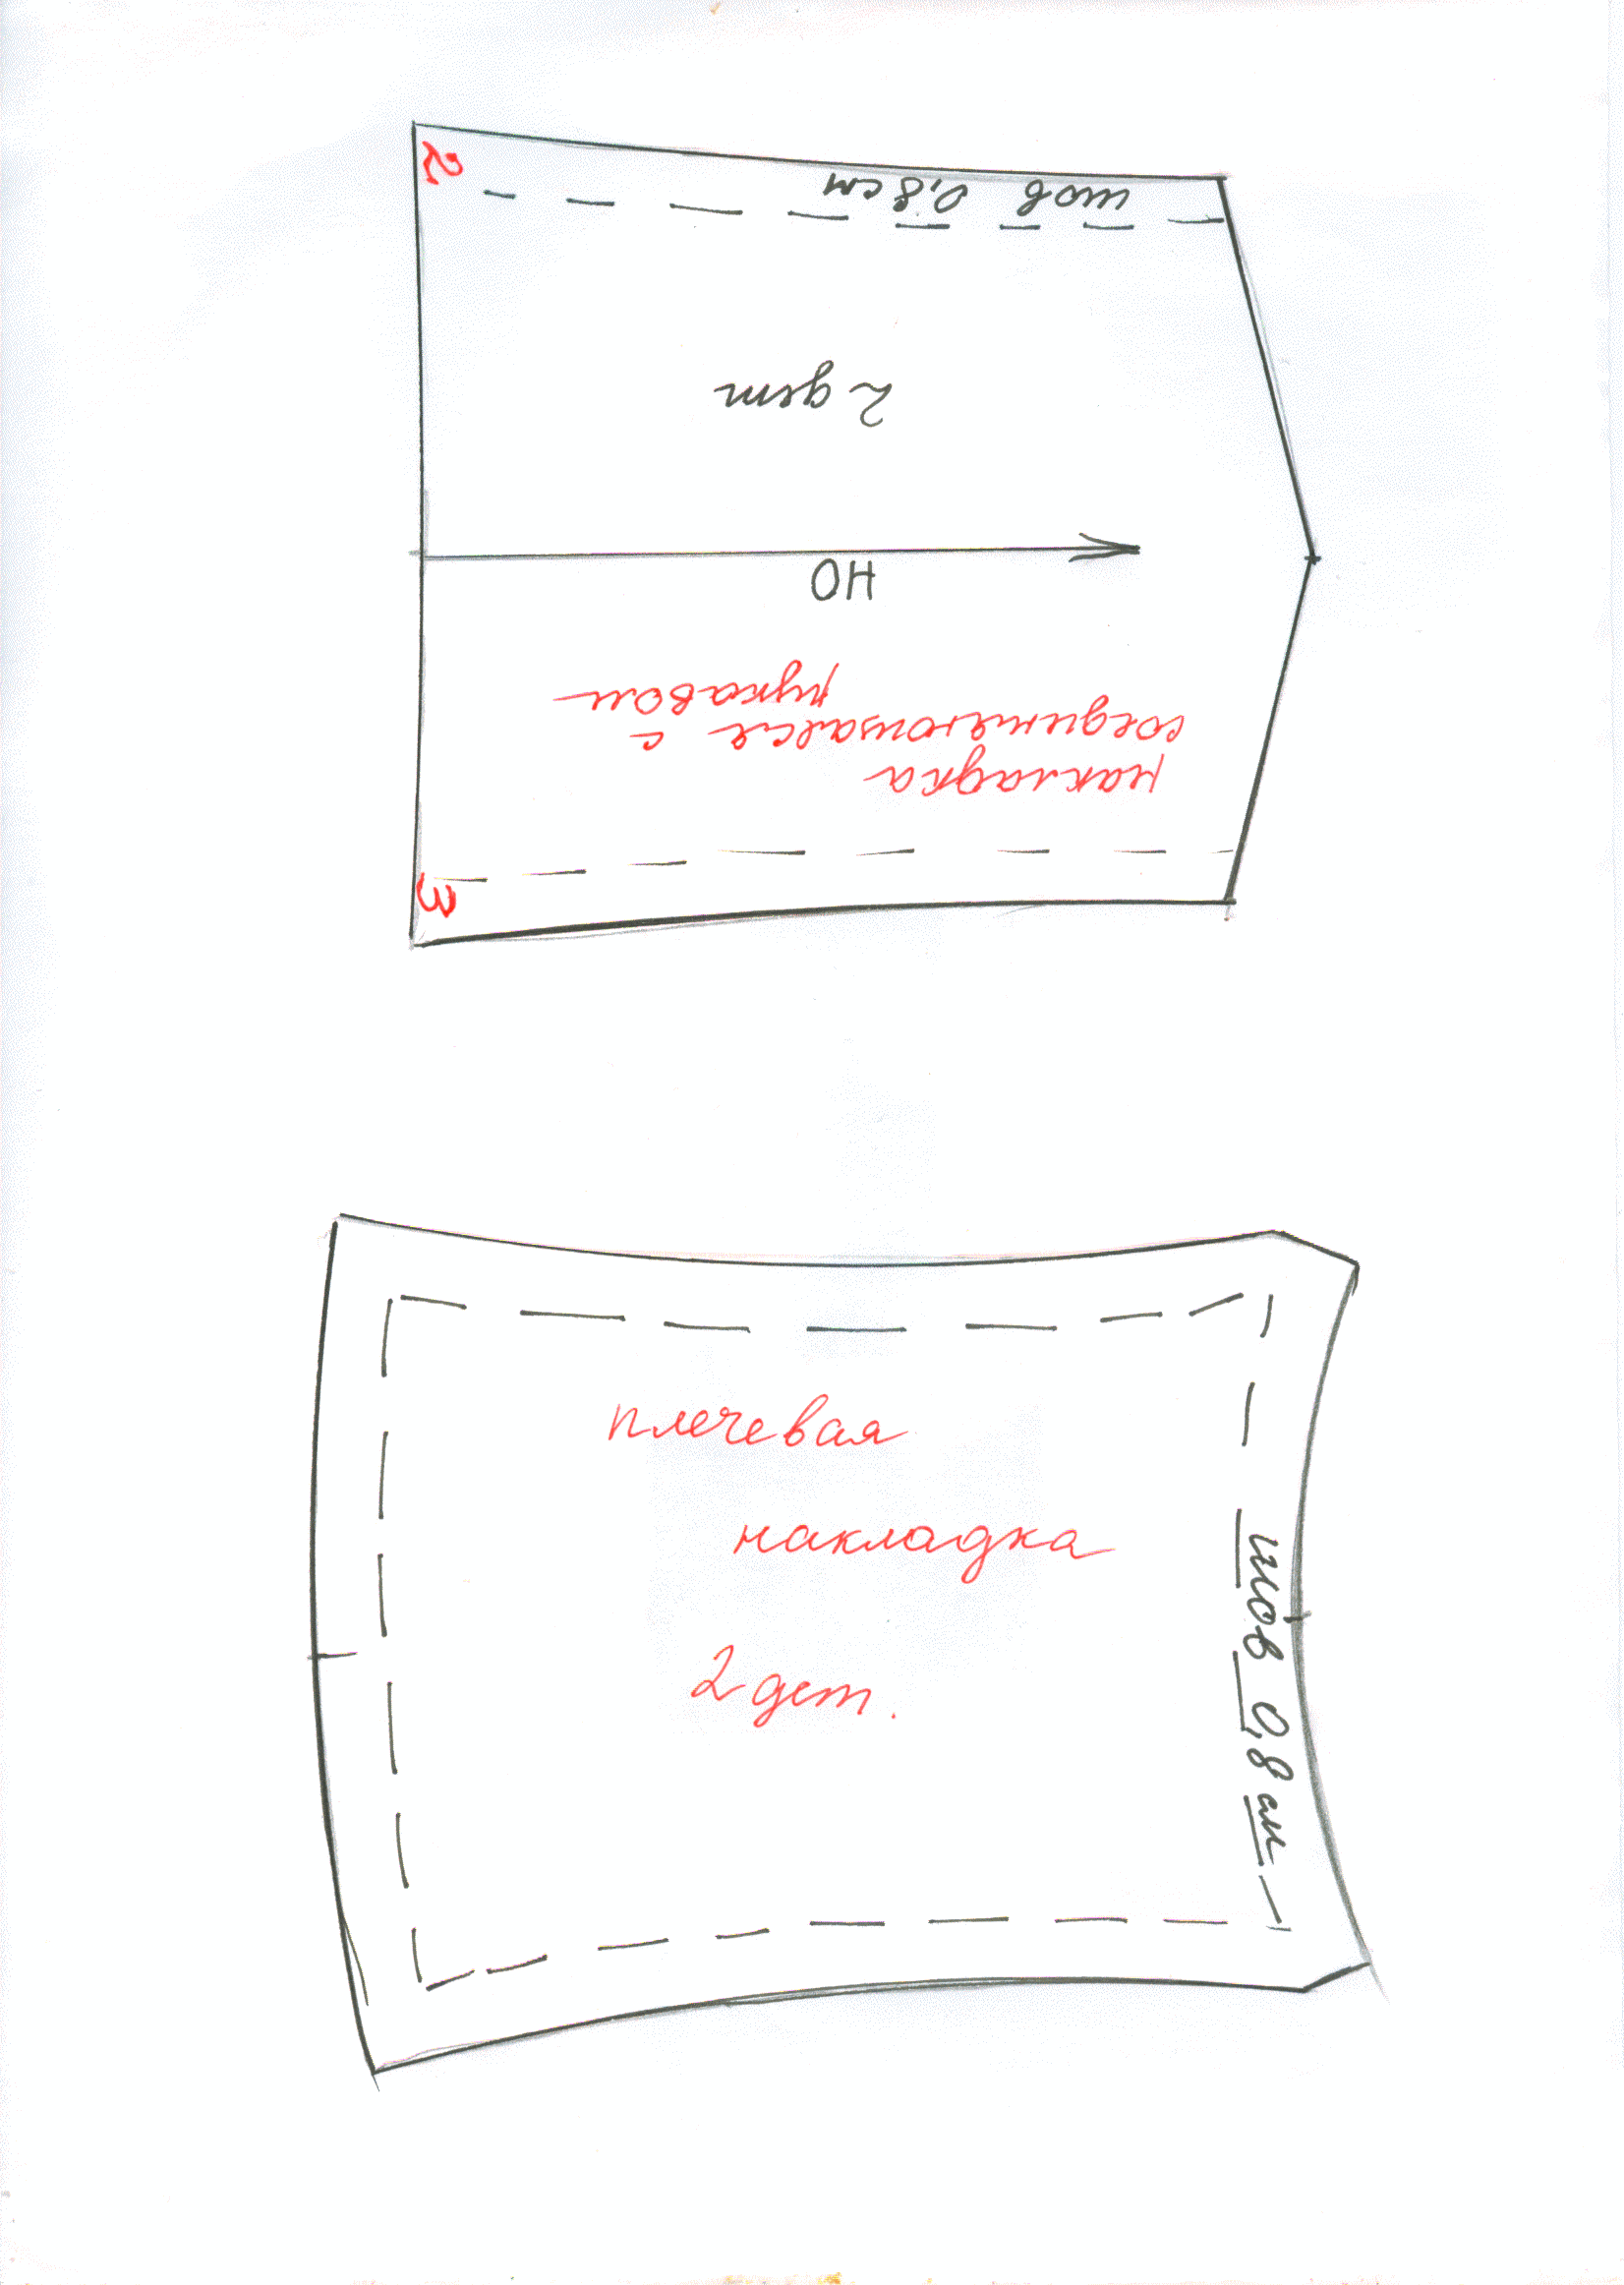 2
шов 0,8 см
2 дет
НО
накладка
соединяющаяся с
рукавом
3
плечевая
накладка
2 дет.
шов 0,8 см